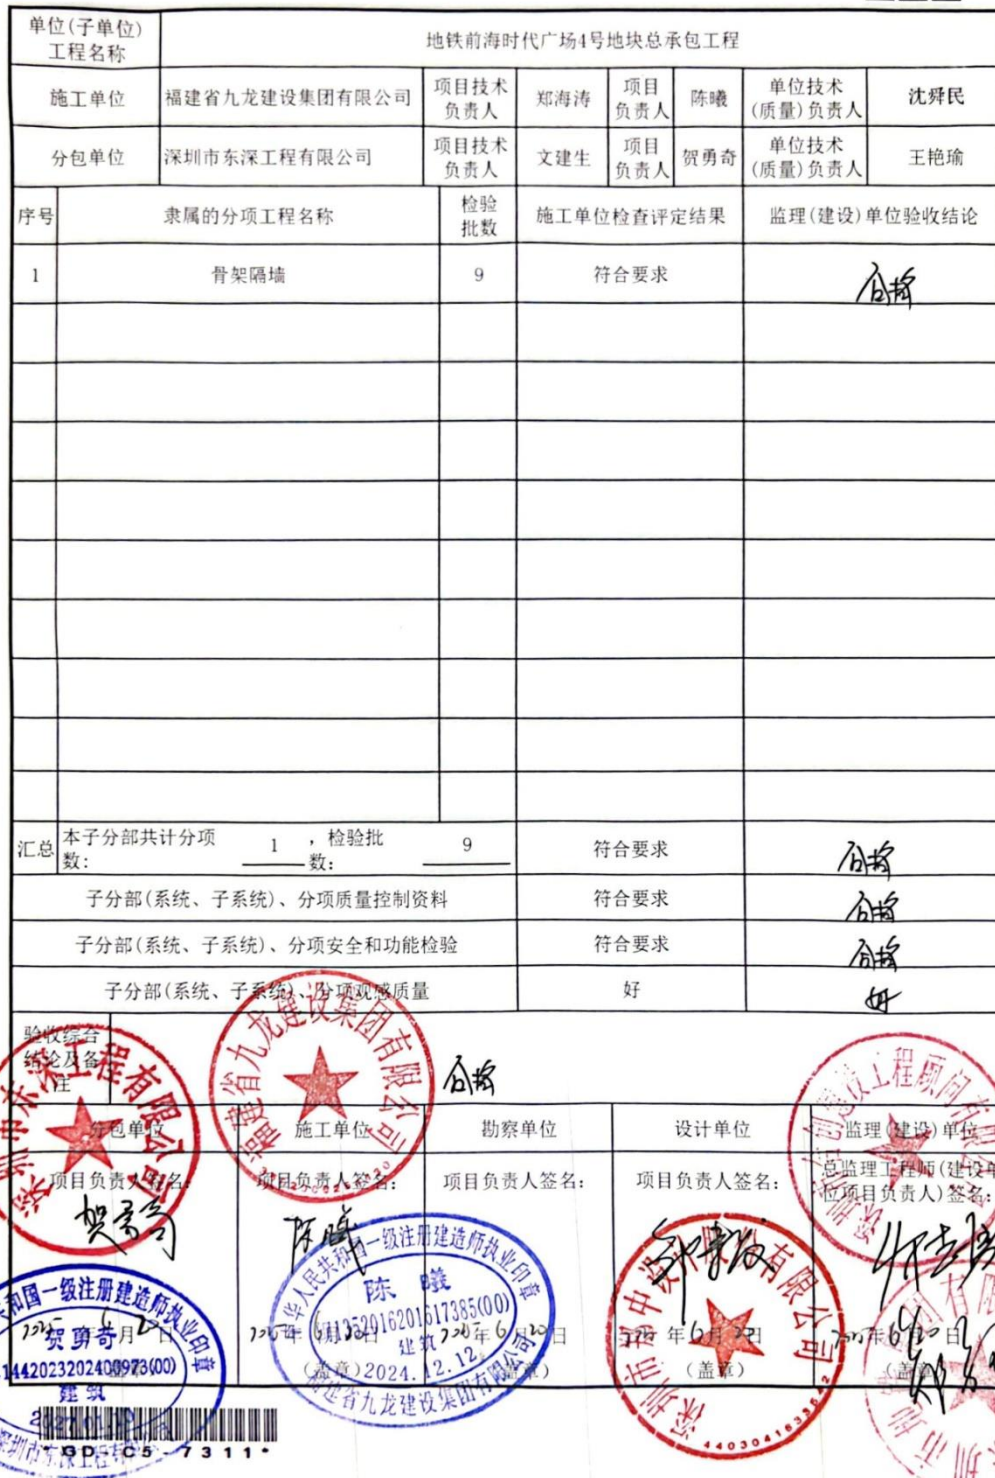 单位(子单位)
工程名称
地铁前海时代广场4号地块总承包工程
施工单位
福建省九龙建设集团有限公司
项目技术
负责人
郑海涛
项目
负责人
陈曦
单位技术
(质量)负责人
沈舜民
分包单位
深圳市东深工程有限公司
项目技术
负责人
文建生
项目
负责人
贺勇奇
单位技术
(质量)负责人
王艳瑜
序号
隶属的分项工程名称
检验
批数
施工单位检查评定结果
监理(建设)单位验收结论
1
骨架隔墙
9
符合要求
合格
汇总
本子分部共计分项
数:
1
,检验批
数:
9
符合要求
合格
子分部(系统、子系统)、分项质量控制资料
符合要求
合格
子分部(系统、子系统)、分项安全和功能检验
符合要求
合格
子分部(系统、子系统)、分项观感质量
好
好
验收综合
结论及备
注
合格
分包单位
施工单位
勘察单位
设计单位
监理(建设)单位
项目负责人签名:
项目负责人签名:
项目负责人签名:
项目负责人签名:
总监理工程师(建设单
位项目负责人)签名:
贺勇奇
陈曦
2025年6月20日
2025年6月20日
2025年6月20日
(盖章)
(盖章)
(盖章)
(盖章)
深圳市东深工程有限公司
福建省九龙建设集团有限公司
和国一级注册建造师执业印章
贺勇奇
1442023202400973(00)
建筑
中华人民共和国一级注册建造师执业印章
陈曦
1352016201617385(00)
建筑
2024.12.12
福建省九龙建设集团有限公司
*GD-C5-7311*